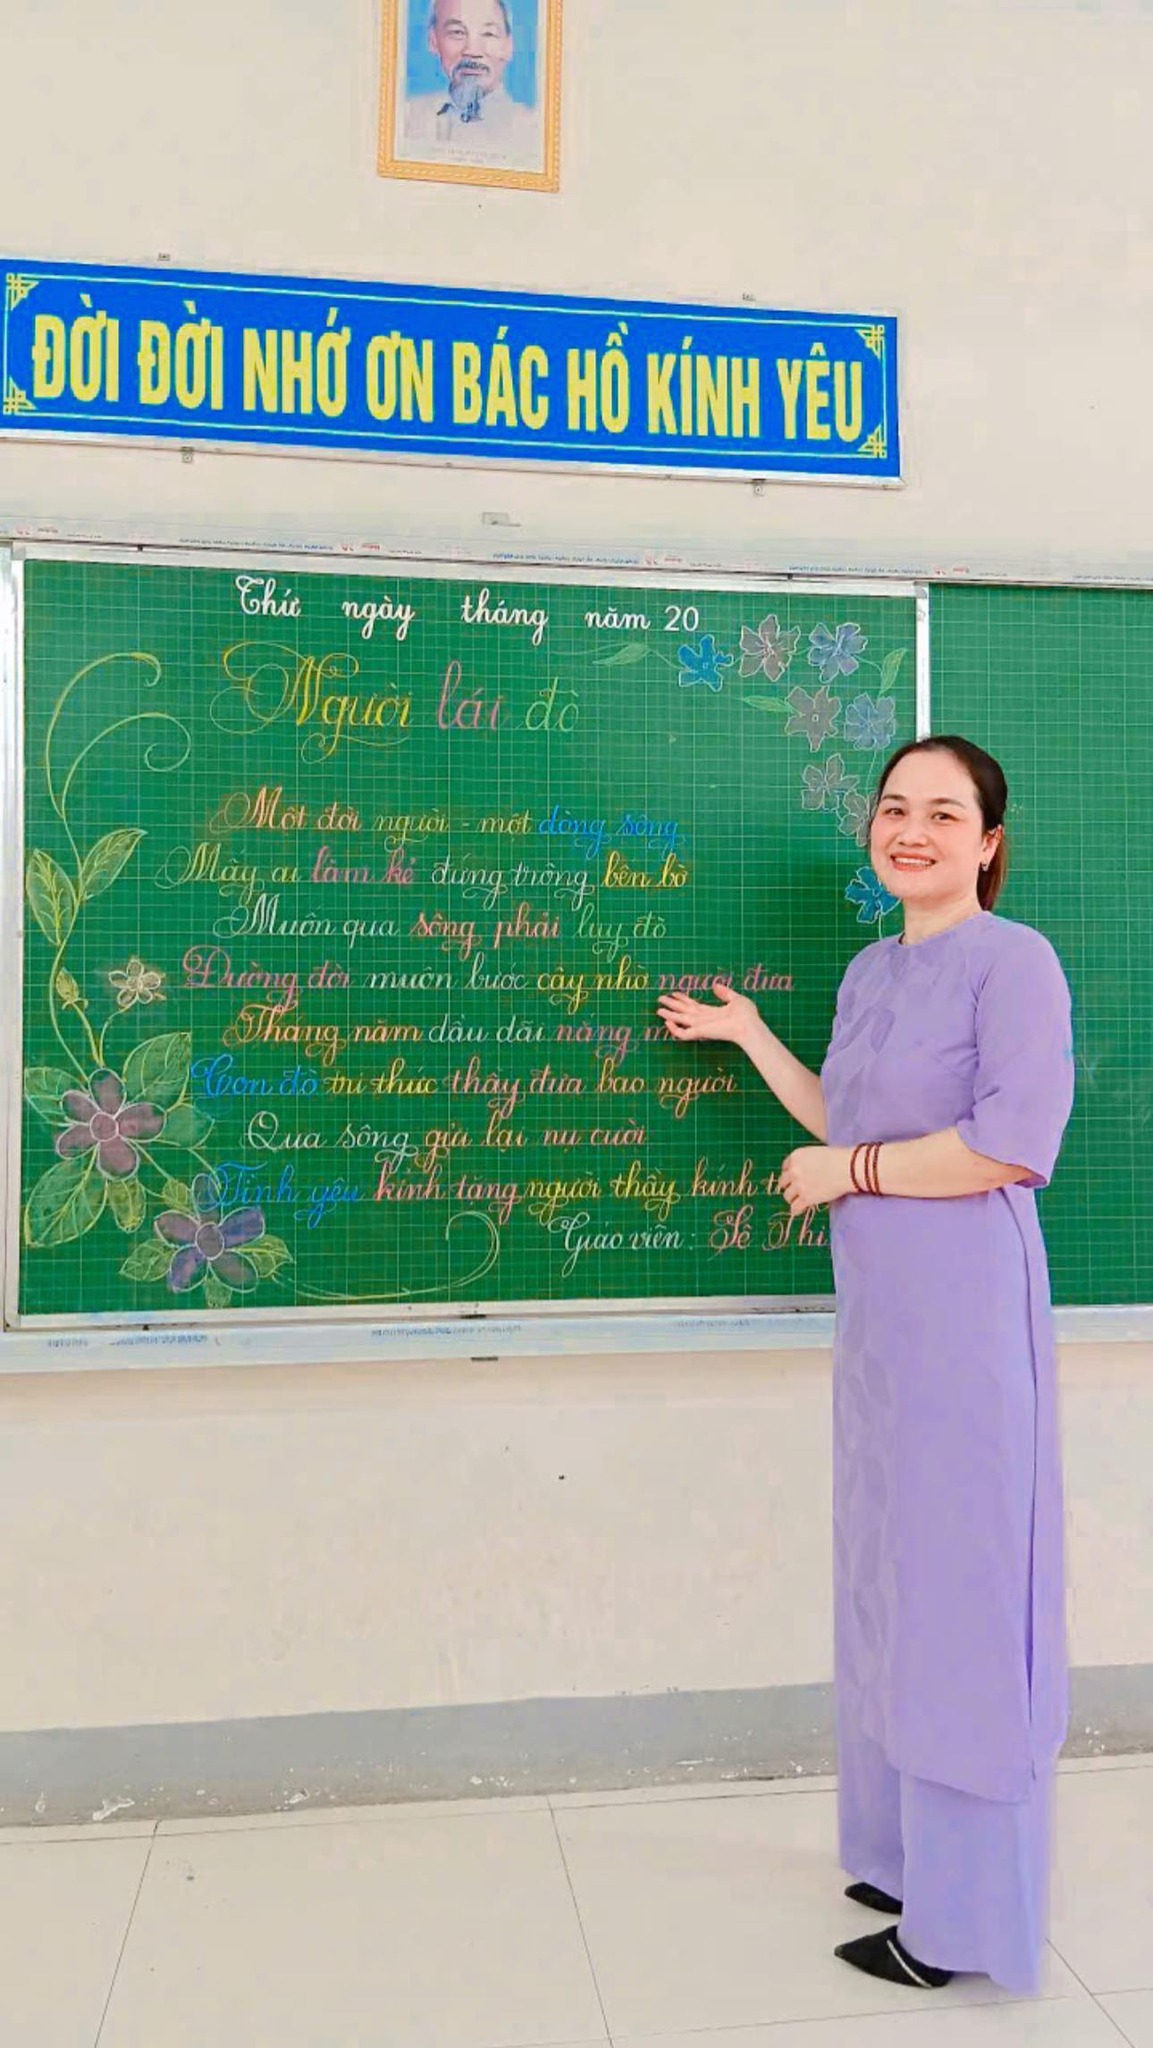 ĐỜI ĐỜI NHỚ ƠN BÁC HỒ KÍNH YÊU
Thứ ngày tháng năm 20
Người lái đò
Một đời người - một dòng sông
Mấy ai làm kẻ đứng trông bến bờ
Muốn qua sông phải lụy đò
Đường đời muôn bước cậy nhờ người đưa
Tháng năm dầu dãi nắng
Con đò tri thức thầy đưa bao người
Qua sông gửi lại nụ cười
Tình yêu kính tặng người thầy kính
Giáo viên: Lê Thị